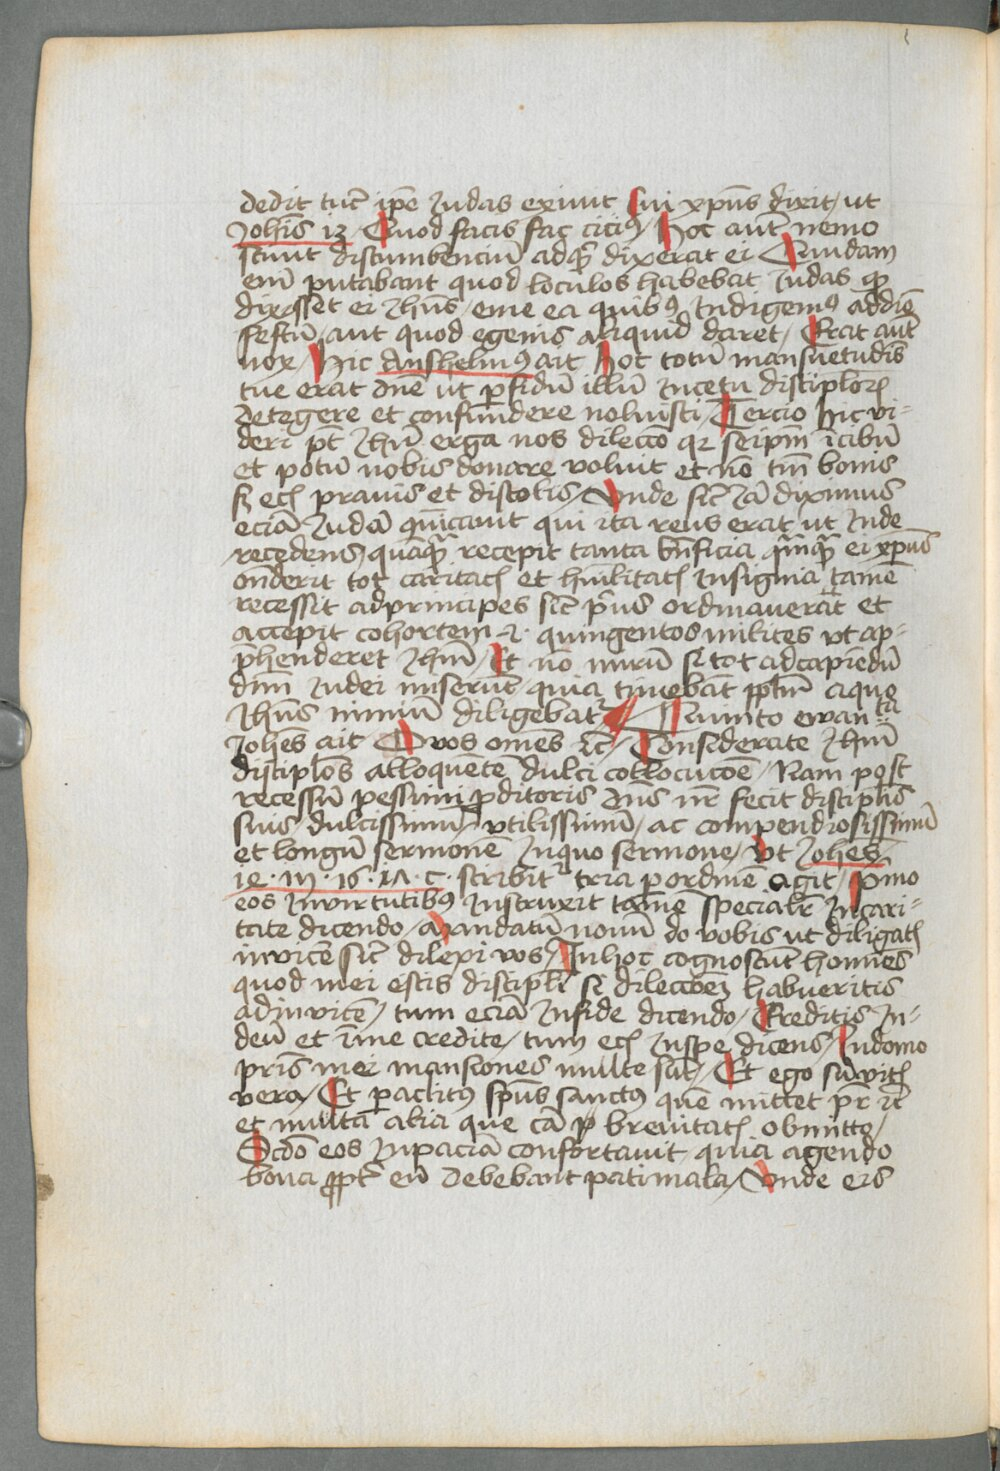 dedit tūc ip̄e Iudas exiuit Cui xp̄us dixit / ut
Joh̄is 13 Quod facis fac cicius / Hoc aut̄ nemo
sciuit discumbenciū ad quid dixerat ei Quidam
enī putabant quod loculos habebat Iudas qꝫ
dixisset ei Ih̄us / eme ea quibꝫ Indigemꝰ ad diē
festū / aut quod egenis aliquid daret / Erat aut̄
nox / Hic Anshelmꝰ ait Hoc totū mansuetudis̄
tue erat dn̄e ut ꝑfidū illū In cetu disciplor̄
detegere et confundere noluisti / Tercio hic vi-
deri pt̄ Ih̄u erga nos dileccō qꝛ seip̄m ī cibū
et potū nobis donare voluit et nō tm̄ bonis
sꝫ ec̄ prauis et discolis / Vnde sic̄ Iā diximus
eciā Iudā cōīcauit qui ita reus erat ut Inde
recedens / quāqꝫ recepit tanta bn̄ficia qm̄qꝫ ei xp̄us
on̄derit tot caritat̄ et hūilitat̄ Insignia tamē
recessit ad principes sic̄ pͥus ordinauerat et
accepit cohortem .i. quingentos milites vt ap-
p̄henderet Ih̄m / Et nō mirū si tot ad capiēdū
dn̄m Iudei miserūt quia timebāt ppl̄m a quo
Ih̄us nimiū diligebat² Quinto ewanᵗᵃ
Joh̄es ait O vos om̄es ꝛc̄ / Considerate Ih̄m
discipl̄os alloquētē dulci collocucōe / Nam post
recessū pessimi ꝓditoris dn̄s nr̄ fecit discipl̄is
suis / dulcissimū / vtilissimū / ac compendiosissimū
et longū sermonē In quo sermone / vt Joh̄es
14 . 15 . 16 . 17 . c . scribit² tria ꝑ ordinē agit / pͥmo
eos In virtutibꝫ Instruxit tamē specialr̄ In cari-
tate dicendo / Mandatū nouū do vobis ut diligat̄
invicē sic̄ dilexi vos / In hoc cognoscūt homīes
quod mei estis discipl̄i si dileccōeꝫ habueritis
ad invicē / tum eciā In fide dicendo / Creditis In-
deū et ī me credite / tum ec̄ In spe dicens / In domo
pr̄is mei mansiones multe sūt / Et ego sū vit̄
vera / Et ꝑaclitꝰ sp̄us sanctꝰ quē mittet pr̄ ꝛc̄
et multa alia que cā ꝓ breuitat̄ obmitto /
Scd̄o eos In paciā confortauit quia agendo
bona ꝓpt̄ eū debebant pati mala / Vnde eis